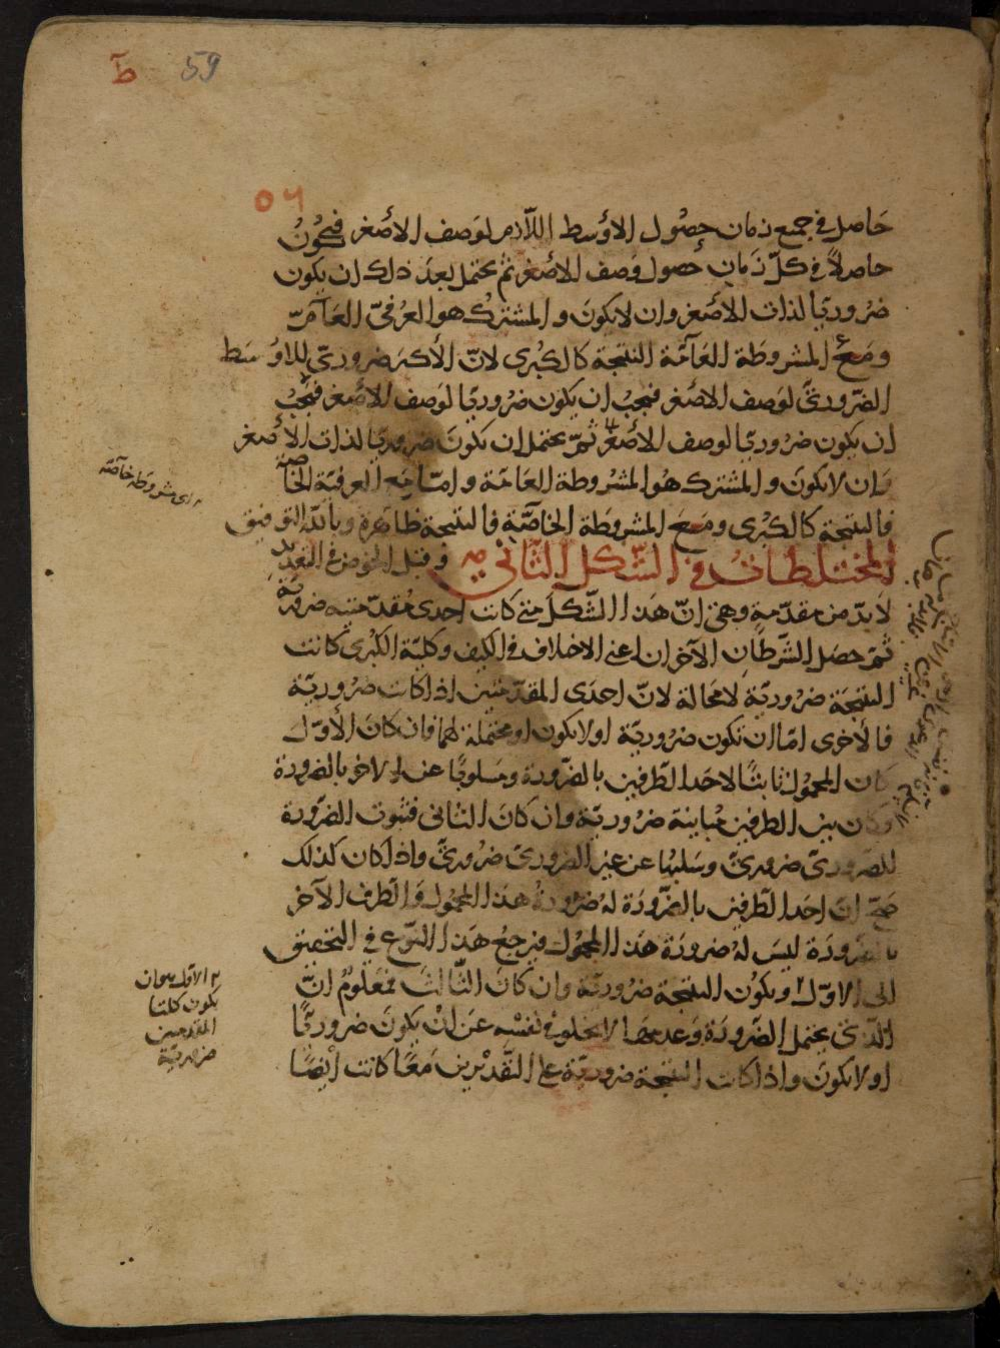 59
حَاصل في جميع زمان حصُول الاوسط اللّازم لوَصف الأصغر فيكُونُ
حاصلاً في كلّ زَمانِ حصول وَصف الاصغر ثمّ يحتمل بعدَ ذلك ان يكون
ضرُوريّا لذات الاصَغر وان لا يكونَ والمشتركُ هو العُرفيّ العَامّ
ومَعَ المشروطَة العَامّة النتيجة كالكبُرى لانّ الأكبَر ضروريّ للاوسَط
الضّروريّ لوَصف الاصَغر فيجبُ ان يكون ضرُوريّا لوَصف الاصغر فيجُب
ان يكون ضرُوريّا لوصف الأصغر ثمّ يحتمل ان يكونَ ضروريّا لذات الأصغر
وَان لا يكونَ والمشترك هوُ المشرُوطة العَامّة وامّا مَع العرفيّة الخاصّة
فالنتيجَة كالكبُرى ومَعَ المشروطَة الخاصّة فالنتيجة ظاهرة وبالله التوفيق
المختلطات في الشّكل الثّاني وقبل الخوض في التعديد
لا بدّ من مقدّمةٍ وهي انّ هَذا الشّكلَ متى كانت احدى مُقدّمتيه ضروريّة
ثمّ حصَل الشّرطَانِ الآخران اعني الاختلاف في الكيف وكليّة الكبُرى كانت
النتيجَة ضرُوريّةً لا محَالة لانّ احدَى المقدّمتين اذا كانت ضرُوريّة
فالأخرى امّا ان تكون ضرُوريّة او لا يكون او محتملة لهما فان كانَ الأوّل
كان المحمُول ثابتًا لاحَد الطّرفين بالضّرورة ومسَلوبًا عن الاخر بالضرورة
وكان بين الطرفين مُباينة ضرُوريّة وان كانَ الثاني فثبوت الضرورة
للضرُوريّ ضروريّ وسَلبها عن غير الضروريّ ضرُوريّ واذا كان كذلك
صَحّ انّ احَد الطّرفين بالضّرورَة لهُ ضرُورةُ هذا المحمُول وَالطّرف الآخر
بالضّرورَة ليسَ لهُ ضرورَة هَذا المحمُول فيرجعُ هَذا النّوع في التحقيق
الى الاوّل ويكوُن النتيجة ضرُوريّة وان كانَ الثّالثَ فمَعلومٌ انّ
الّذي يحتمل الضّرورَة وَعدمهَا لا يخلو في نفسِه عَن انْ يكونَ ضروريًّا
او لا يكونَ واذا كانت النتيجَة ضرُوريّة على التّقديرين مَعًا كانت ايْضًا
اى مشروطه خاصّة
الاوّل هو ان
يكون كلتا
المقدمتين
ضروريّة